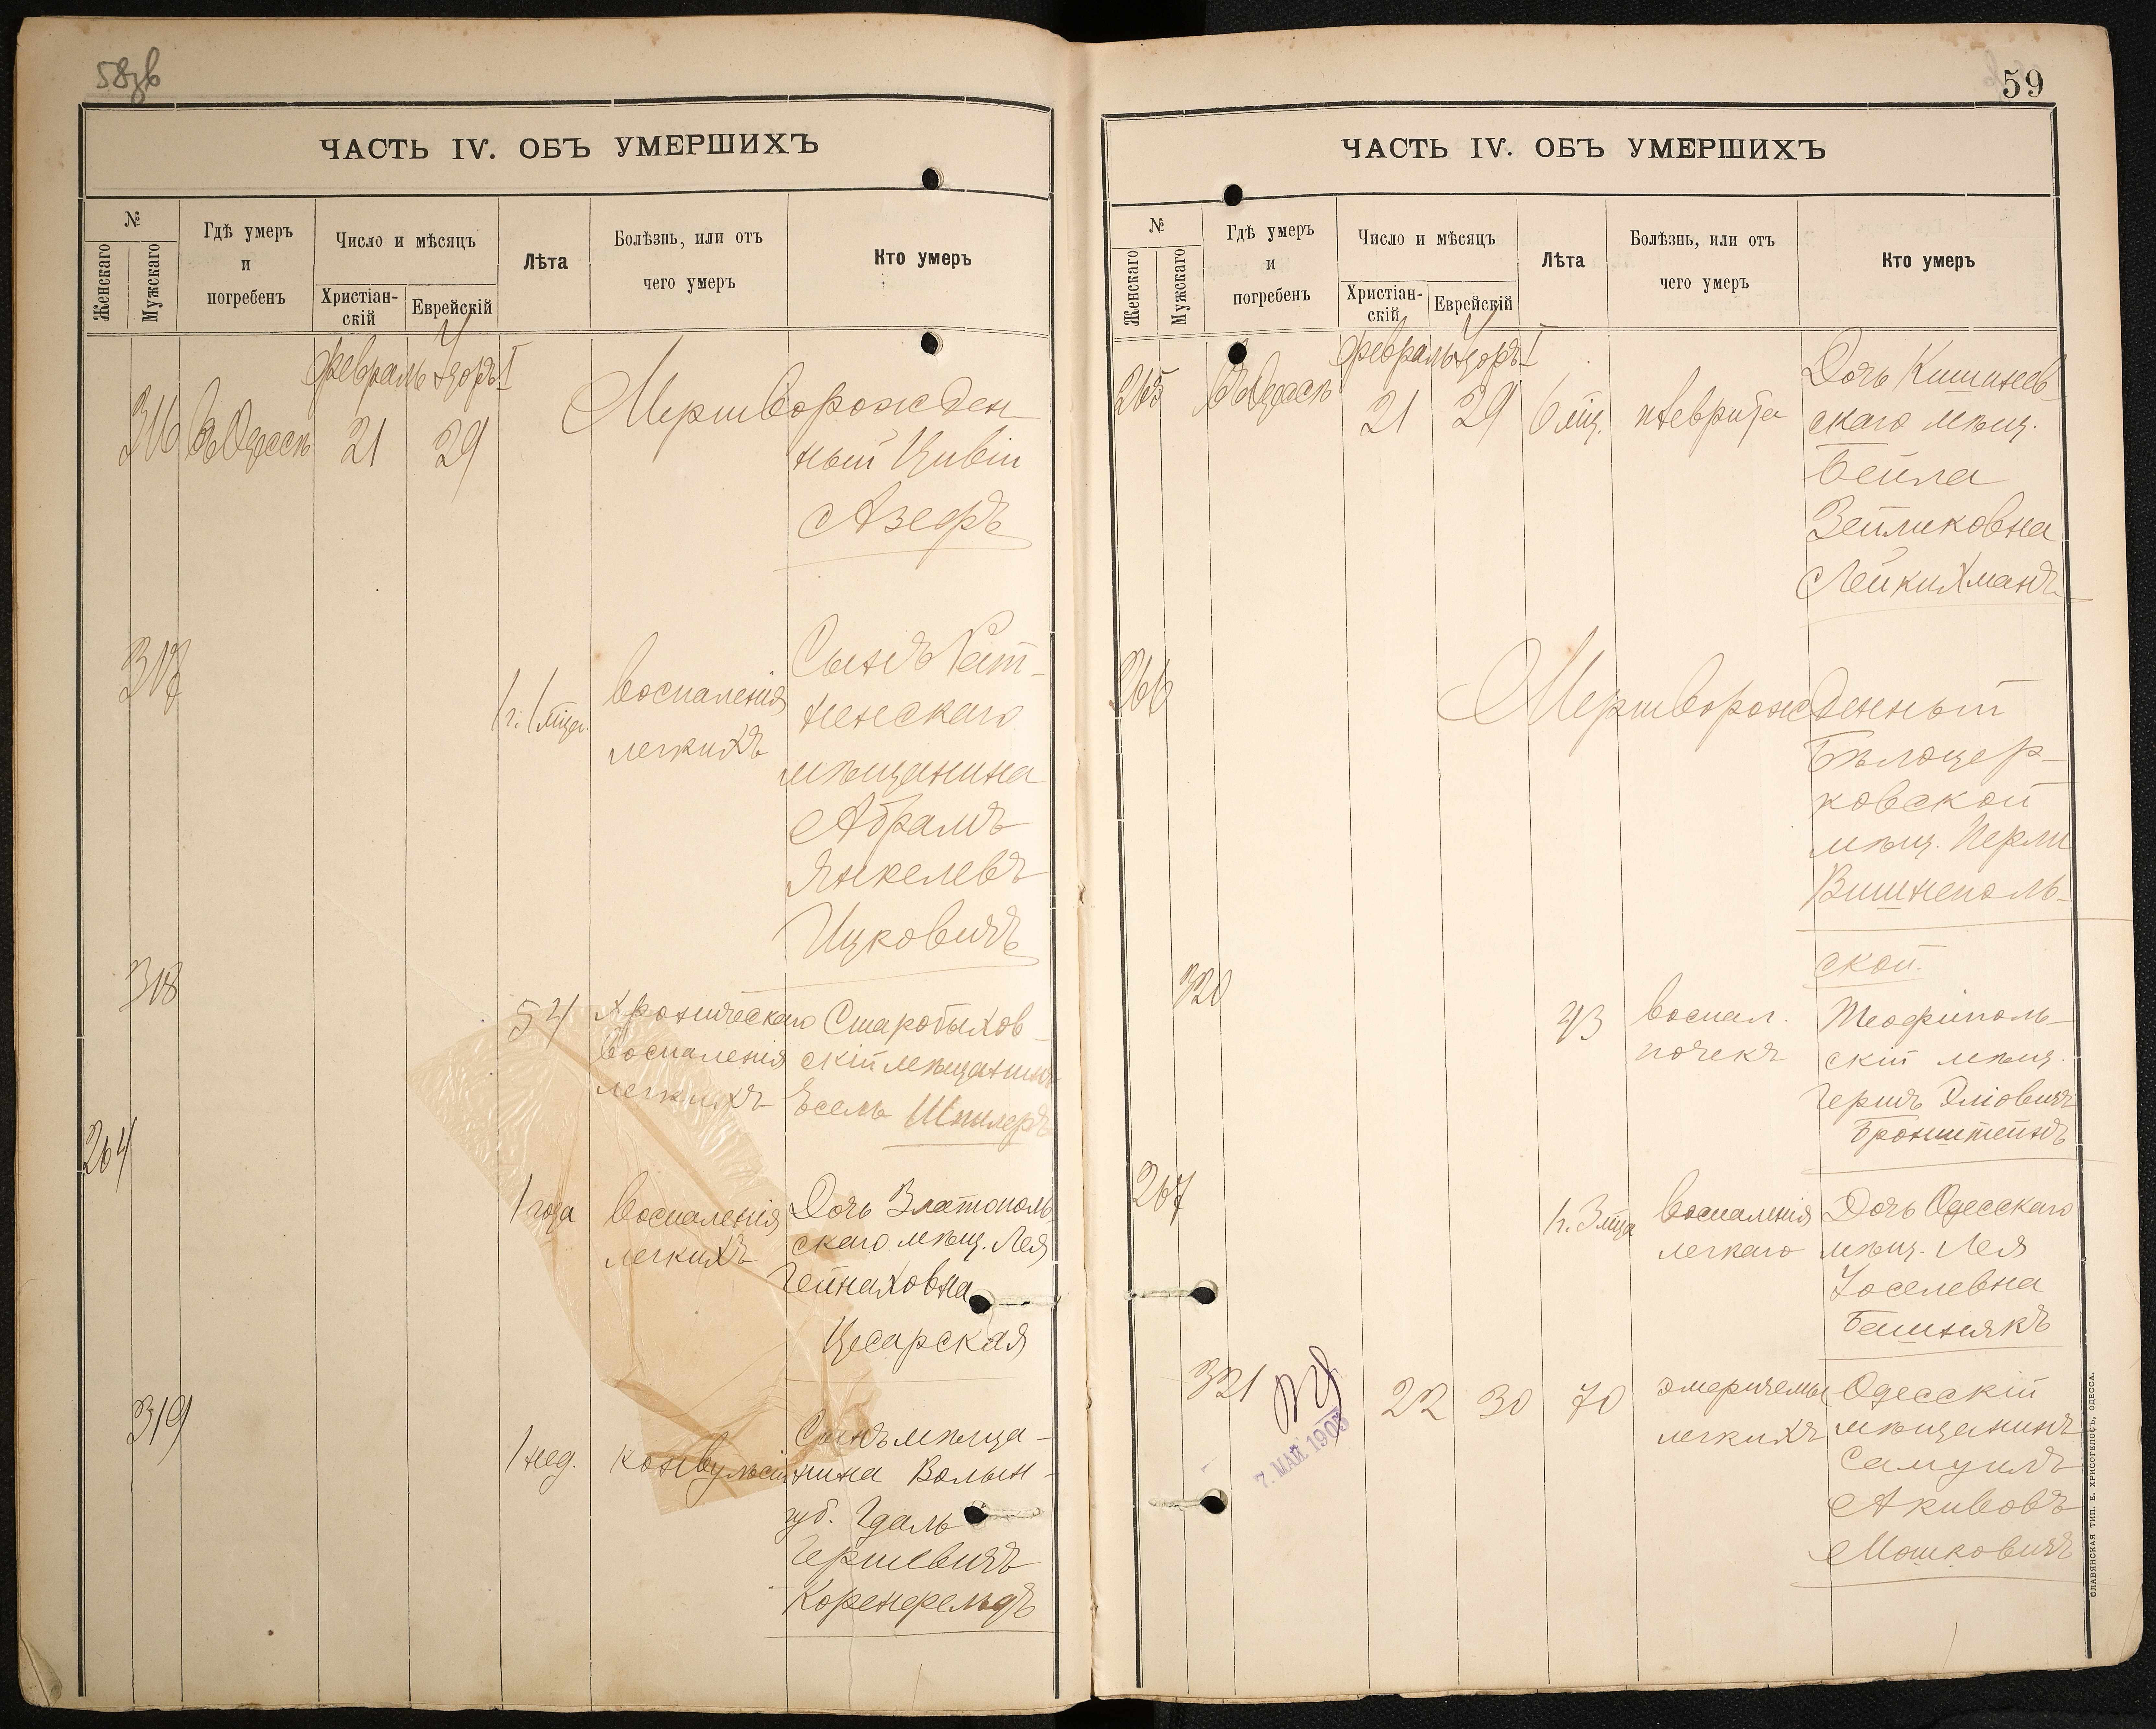 58зв
ЧАСТЬ IV. ОБЪ УМЕРШИХЪ
№
Женскаго
Мужскаго
Гдѣ умеръ
и
погребенъ
Число и мѣсяцъ
Христіан-
скій
Еврейскій
Лѣта
Болѣзнь, или отъ
чего умеръ
Кто умеръ
Февраль Адоръ I
316 Въ Одессѣ 21 29 Мертворожден
ный Цивіи
Азефъ
317
1 г. 1 мѣс.
воспаленія
легкихъ
Сынъ
ненскаго
мѣщанина
Абрамъ
Янкелевъ
Ицковичъ
318
54
хроническаго
воспаленія
легкихъ
Старобыхов
скій мѣщанинъ
Іосель Шпилеръ
264
1 года
воспаленія
легкихъ
Дочь Златополь
скаго мѣщ. Лея
Гейнаховна
Цесарская
319
1 нед.
конвульсіи
Сынъ мѣща-
нина Волын-
губ. Гдаль
Гершевичъ
Коренфельдъ
59
ЧАСТЬ IV. ОБЪ УМЕРШИХЪ
№
Женскаго
Мужскаго
Гдѣ умеръ
и
погребенъ
Число и мѣсяцъ
Христіан-
скій
Еврейскій
Лѣта
Болѣзнь, или отъ
чего умеръ
Кто умеръ
Февраль Адоръ I
265 Въ Одессѣ 21 29 6 мѣс. плеврита
Дочь Кишинев-
скаго мѣщ.
Бейла
Зейликовна
Лейкихманъ
266
Мертворожденный
Бѣлоцер-
ковской
мѣщ. Перли
Вишнеполь-
ской.
320
43
воспал.
почекъ
Теофиполь-
скій мѣщ.
Гершъ Эліовичъ
Бронштейнъ
267
1 г. 3 мѣса
воспаленія
легкаго
Дочь Одесскаго
мѣщ. Лея
Іоселевна
Башнякъ
321
7. МАЙ 1905
22 30 70
эмфиземы
легкихъ
Одесскій
мѣщанинъ
Самуилъ
Акивовъ
Мошковичъ
СЛАВЯНСКАЯ ТИП. Е. ХРИСОГЕЛОСЪ, ОДЕССА.